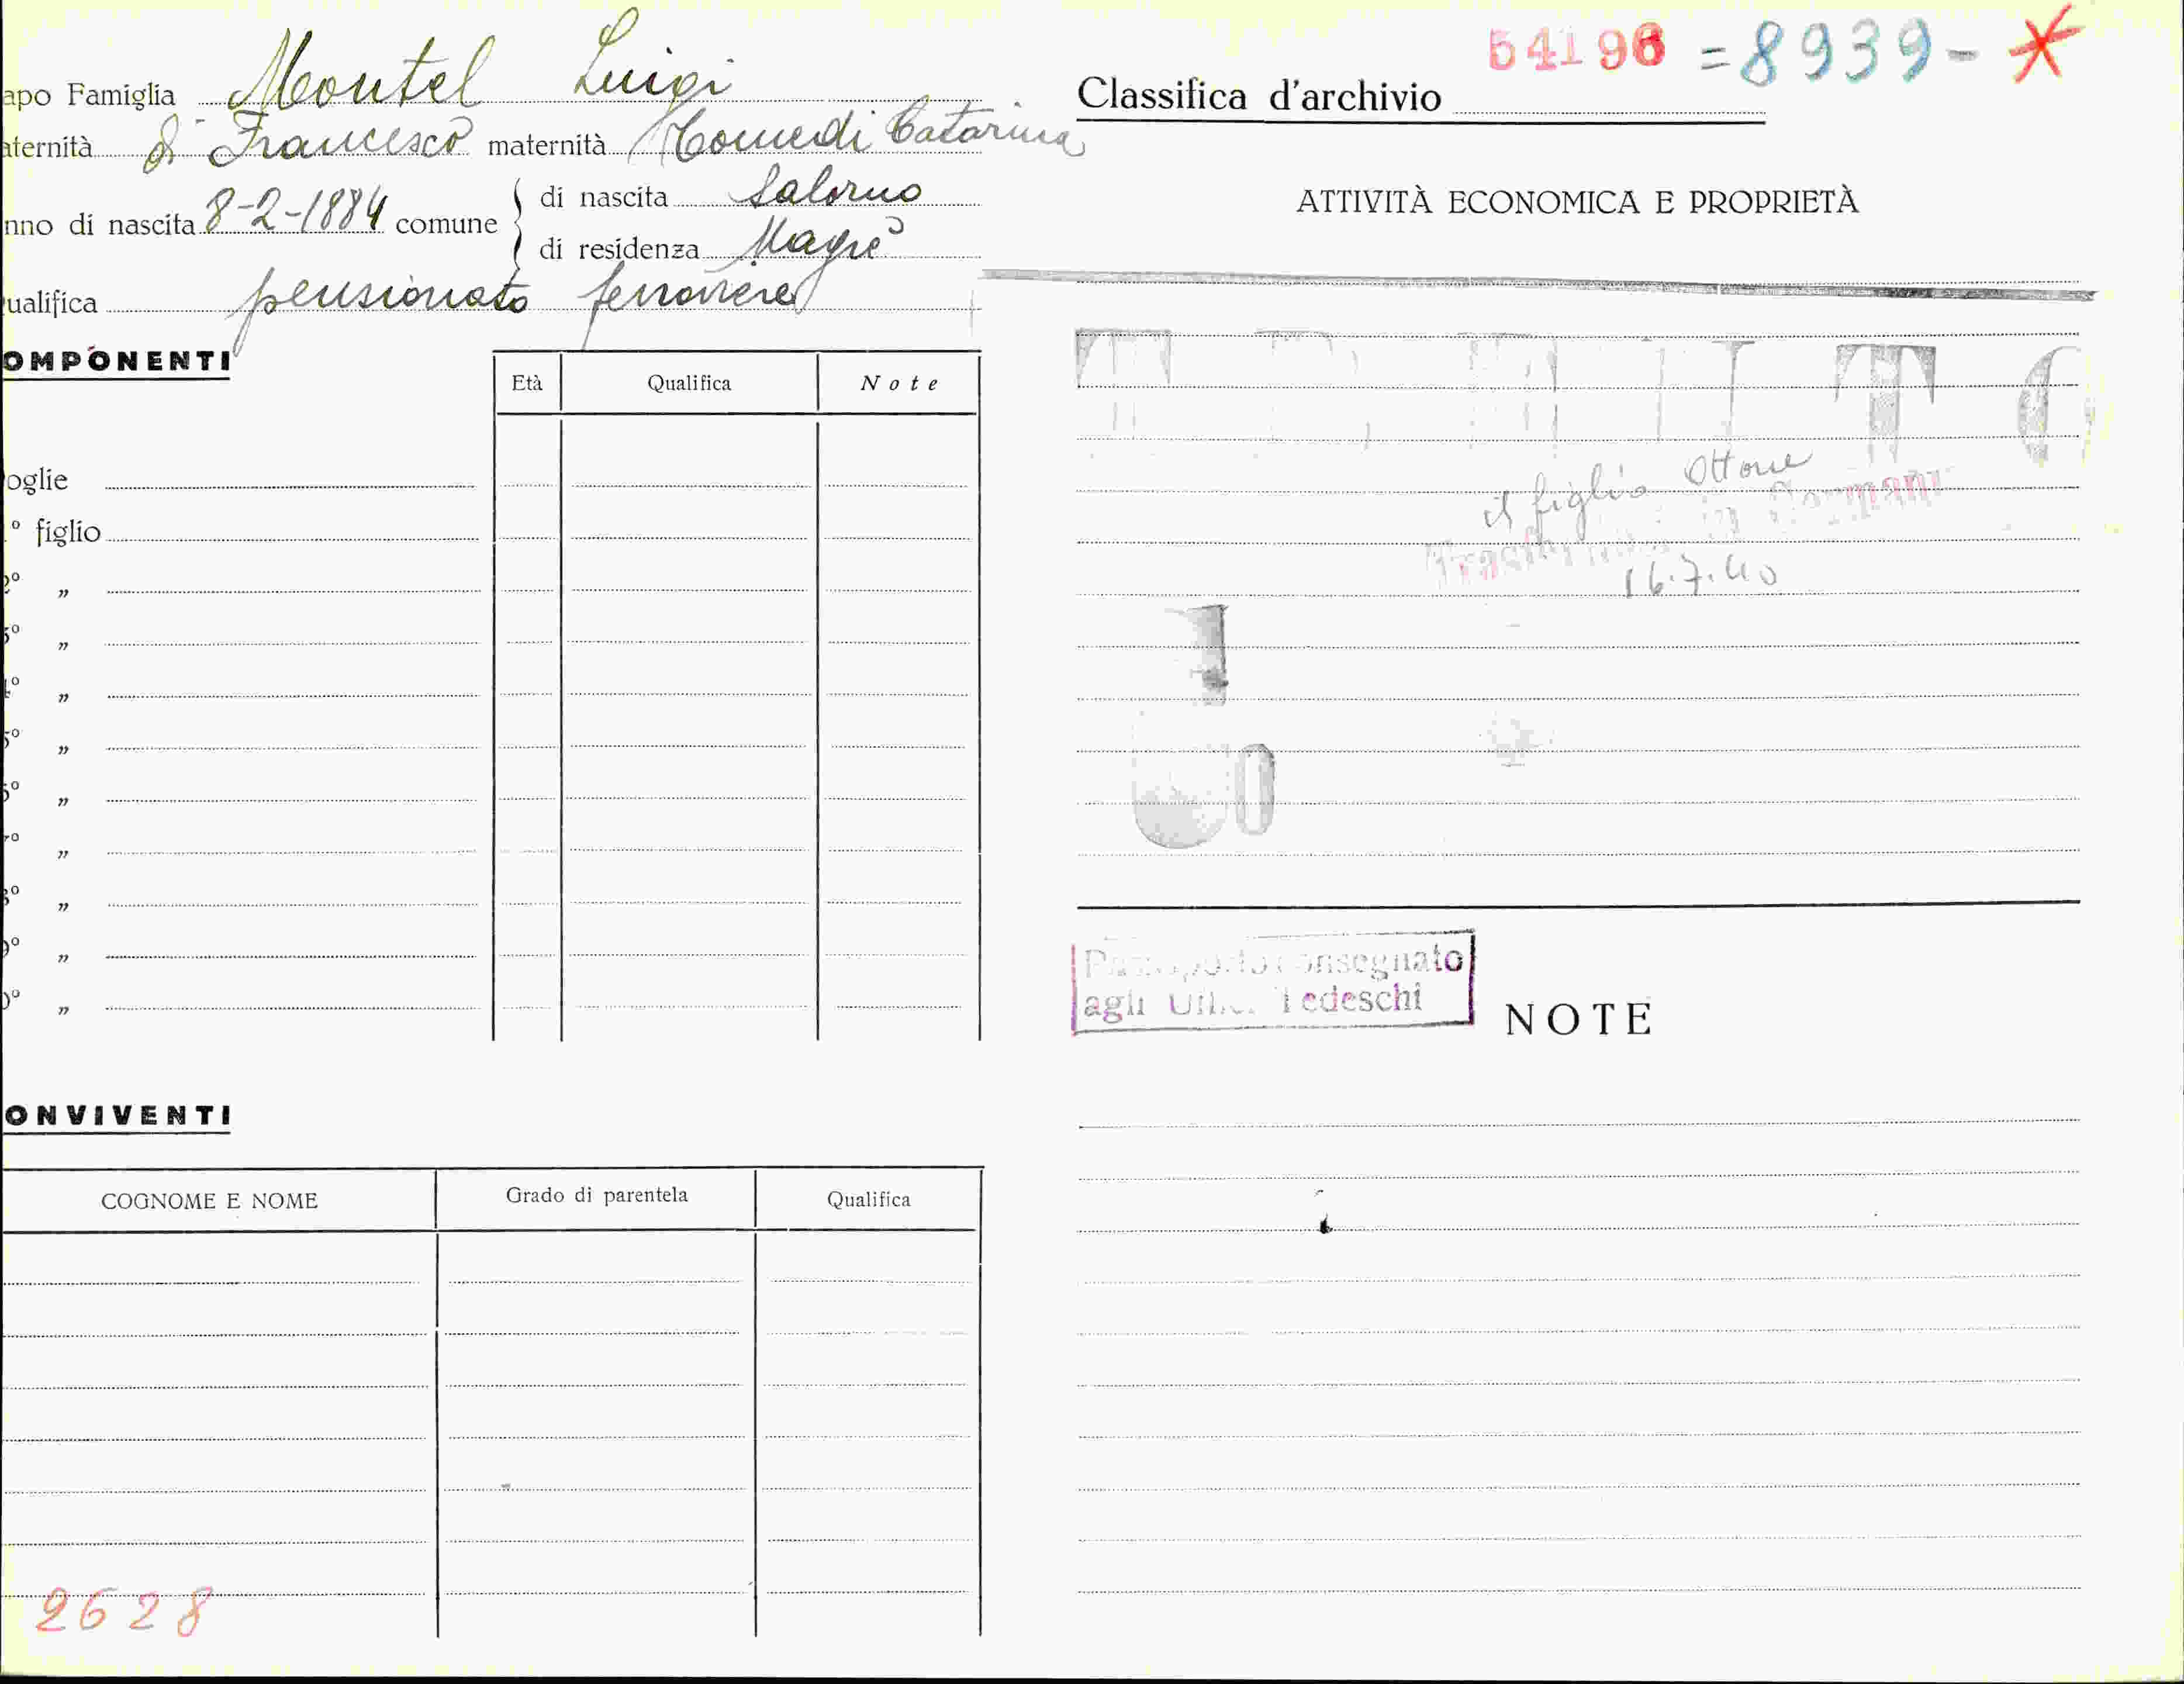 apo Famiglia Montel Luigi
aternità di Francesco maternità Comedi Catarina
nno di nascita 8-2-1884 comune di nascita Salorno
di residenza Magrè
ualifica pensionato ferroviere
OMPONENTI
Età Qualifica Note
oglie
1° figlio
2° „
3° „
4° „
5° „
6° „
7° „
8° „
9° „
0° „
ONVIVENTI
COGNOME E NOME Grado di parentela Qualifica
2628
54196 = 8939 - *
Classifica d'archivio
ATTIVITÀ ECONOMICA E PROPRIETÀ
il figlio Ottone
16.7.40
Passaporto consegnato
agli Uffici Tedeschi
NOTE